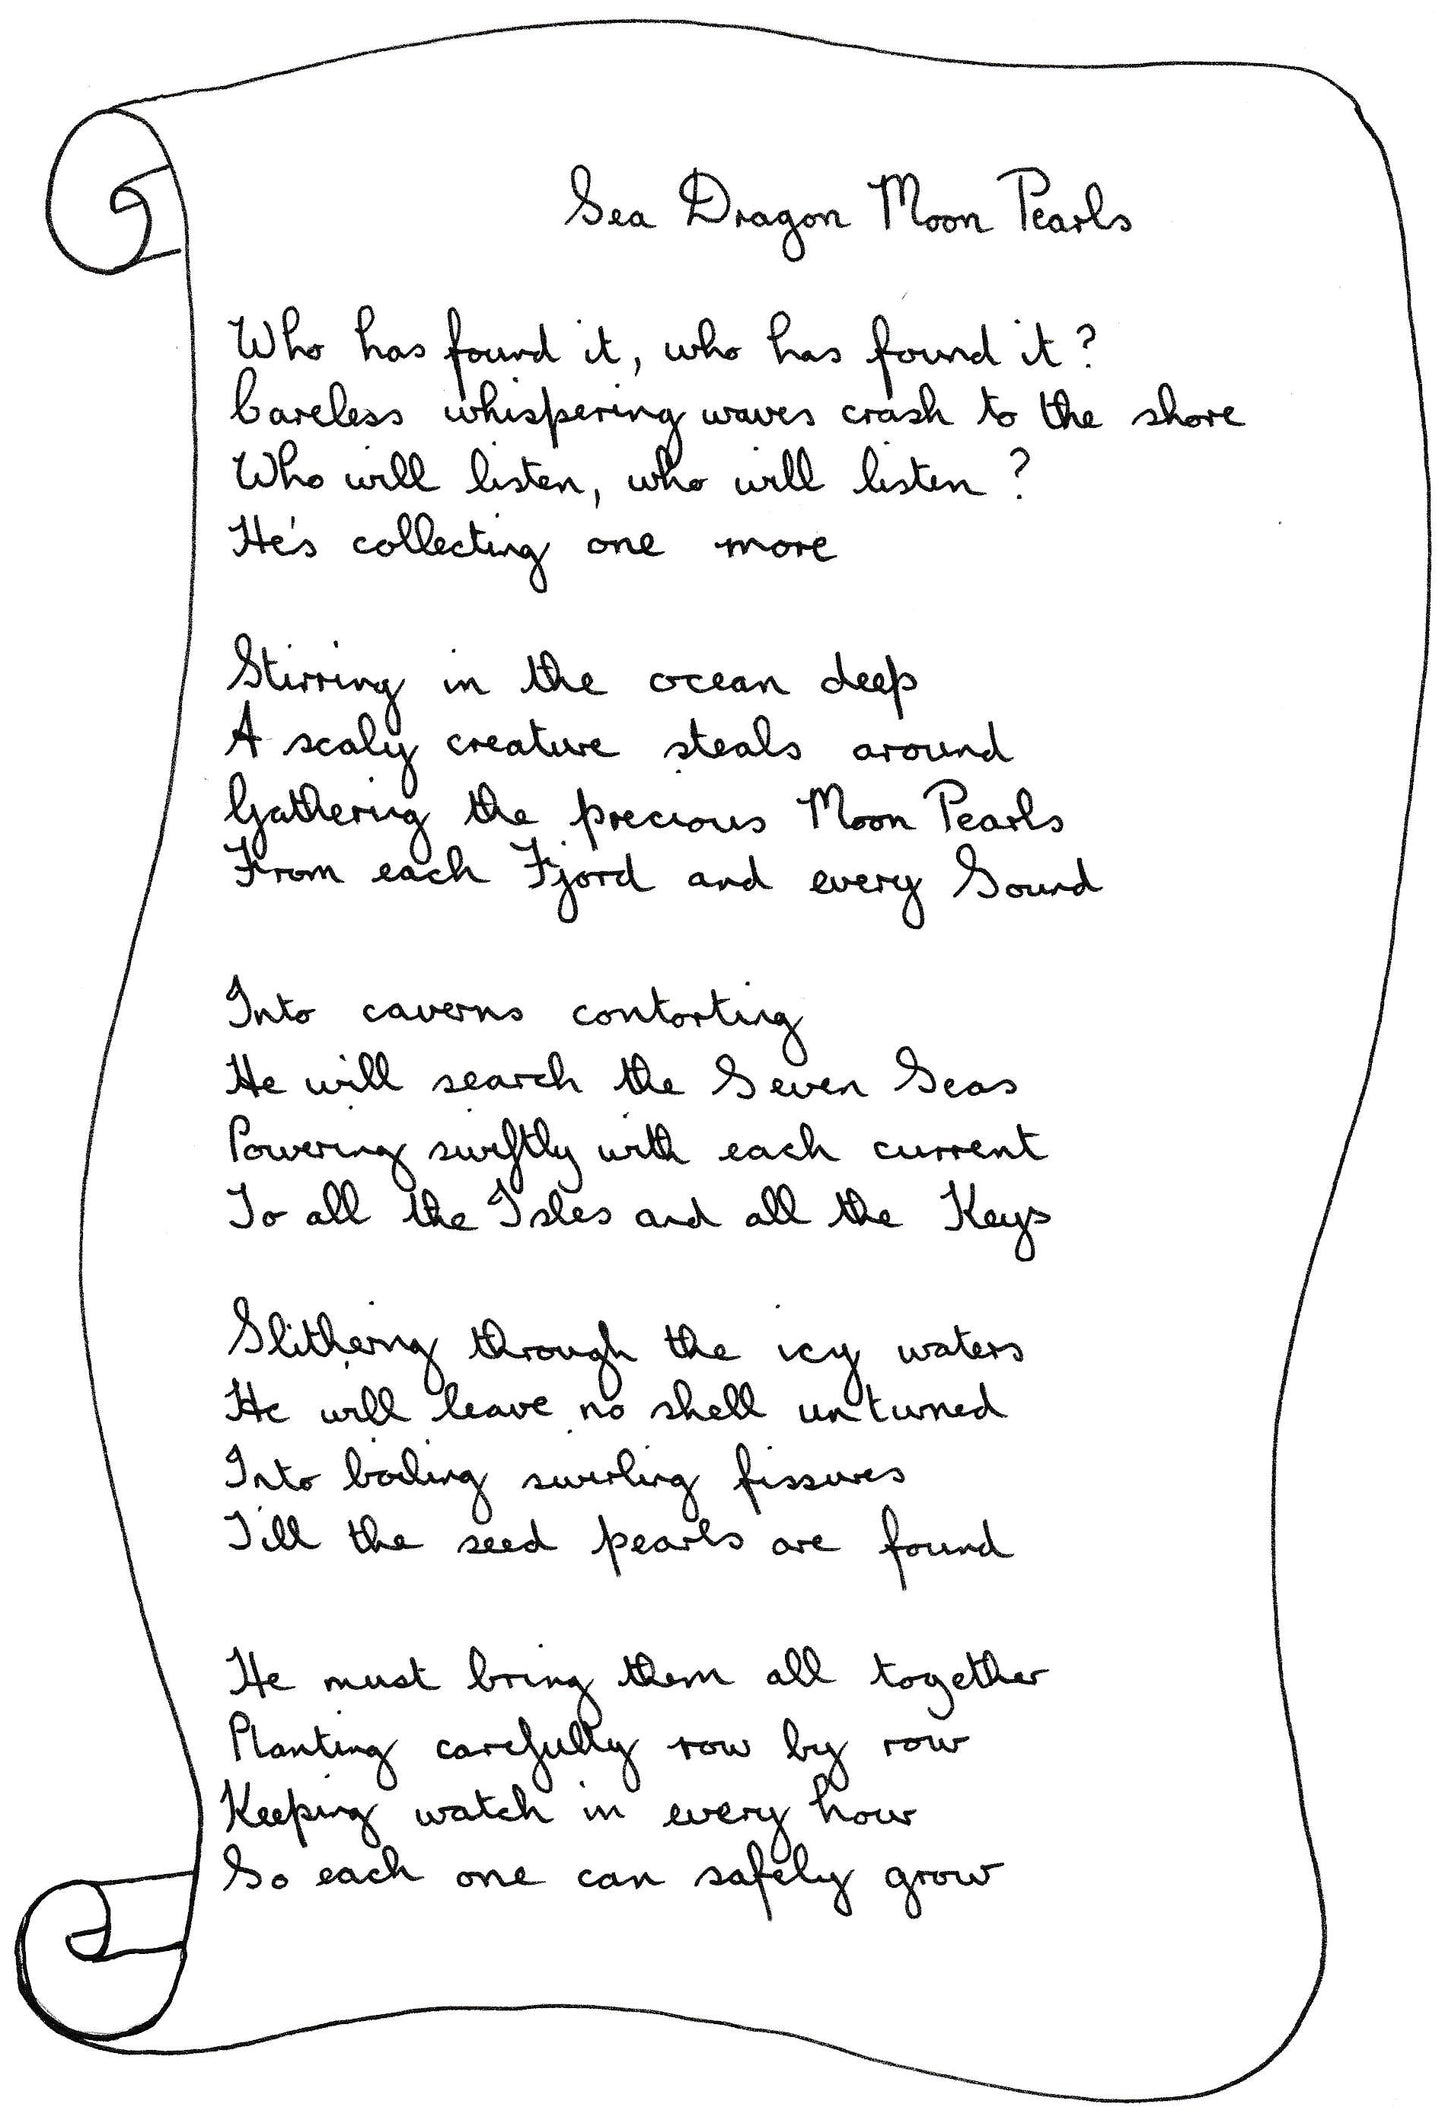 Sea Dragon Moon Pearls
Who has found it, who has found it?
Careless whispering waves crash to the shore
Who will listen, who will listen?
He's collecting one more
Stirring in the ocean deep
A scaly creature steals around
Gathering the precious Moon Pearls
From each Fjord and every Sound
Into caverns contorting
He will search the Seven Seas
Powering swiftly with each current
To all the Isles and all the Keys
Slithering through the icy waters
He will leave no shell unturned
Into boiling swirling fissures
Till the seed pearls are found
He must bring them all together
Planting carefully row by row
Keeping watch in every hour
So each one can safely grow